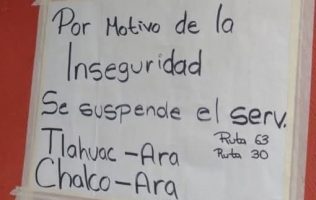 Por Motivo de la
Inseguridad
Se suspende el serv.
Tlahuac - Ara Ruta 63
Chalco - Ara Ruta 30